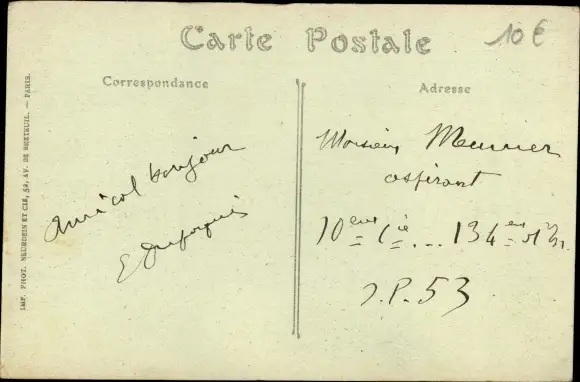 Carte Postale
10 €
Correspondance
Adresse
IMP. PHOT. NEURDEIN ET CIE, 52, AV. DE BRETEUIL. — PARIS.
Amical bonjour
Monsieur Meunier
aspirant
10eme Cie ... 134eme
S.P. 53